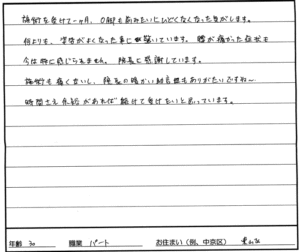 施術を受けて一ヶ月、O脚も前みたいにひどくなくなった気がします。
何よりも、姿勢がよくなった事に驚いています。腰が痛かった症状も
今は特に感じられません。院長に感謝しています。
施術も痛くないし、院長の暖かい お言葉もありがたいですね〜
時間さえ余裕があれば続けて受けたいと思っています。
年齢 30 職業 パート お住まい(例、中京区)